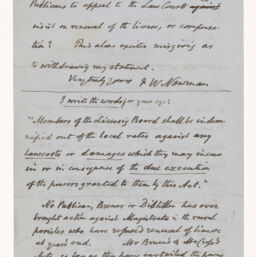 Publicans to appeal to the Law Courts against
insist on renewal of the license, or compensa-
tion? This alone excites misgiving as
to withdrawing my statement.
Very truly Yours F. W. Newman
I write the words for your eye:
"Members of the Licensing Board shall be indem-
nified out of the local rates against any
lawcosts or damages which they may incur
in or in consequence of the due execution
of the powers granted to them by this Act."
No Publican, Brewer or Distiller has ever
brought action against Magistrates in the rural
parishes who have refused renewal of license
at year's end. Mr Bruce's & Mr Cross's
Acts, so long as they have curtailed the powers